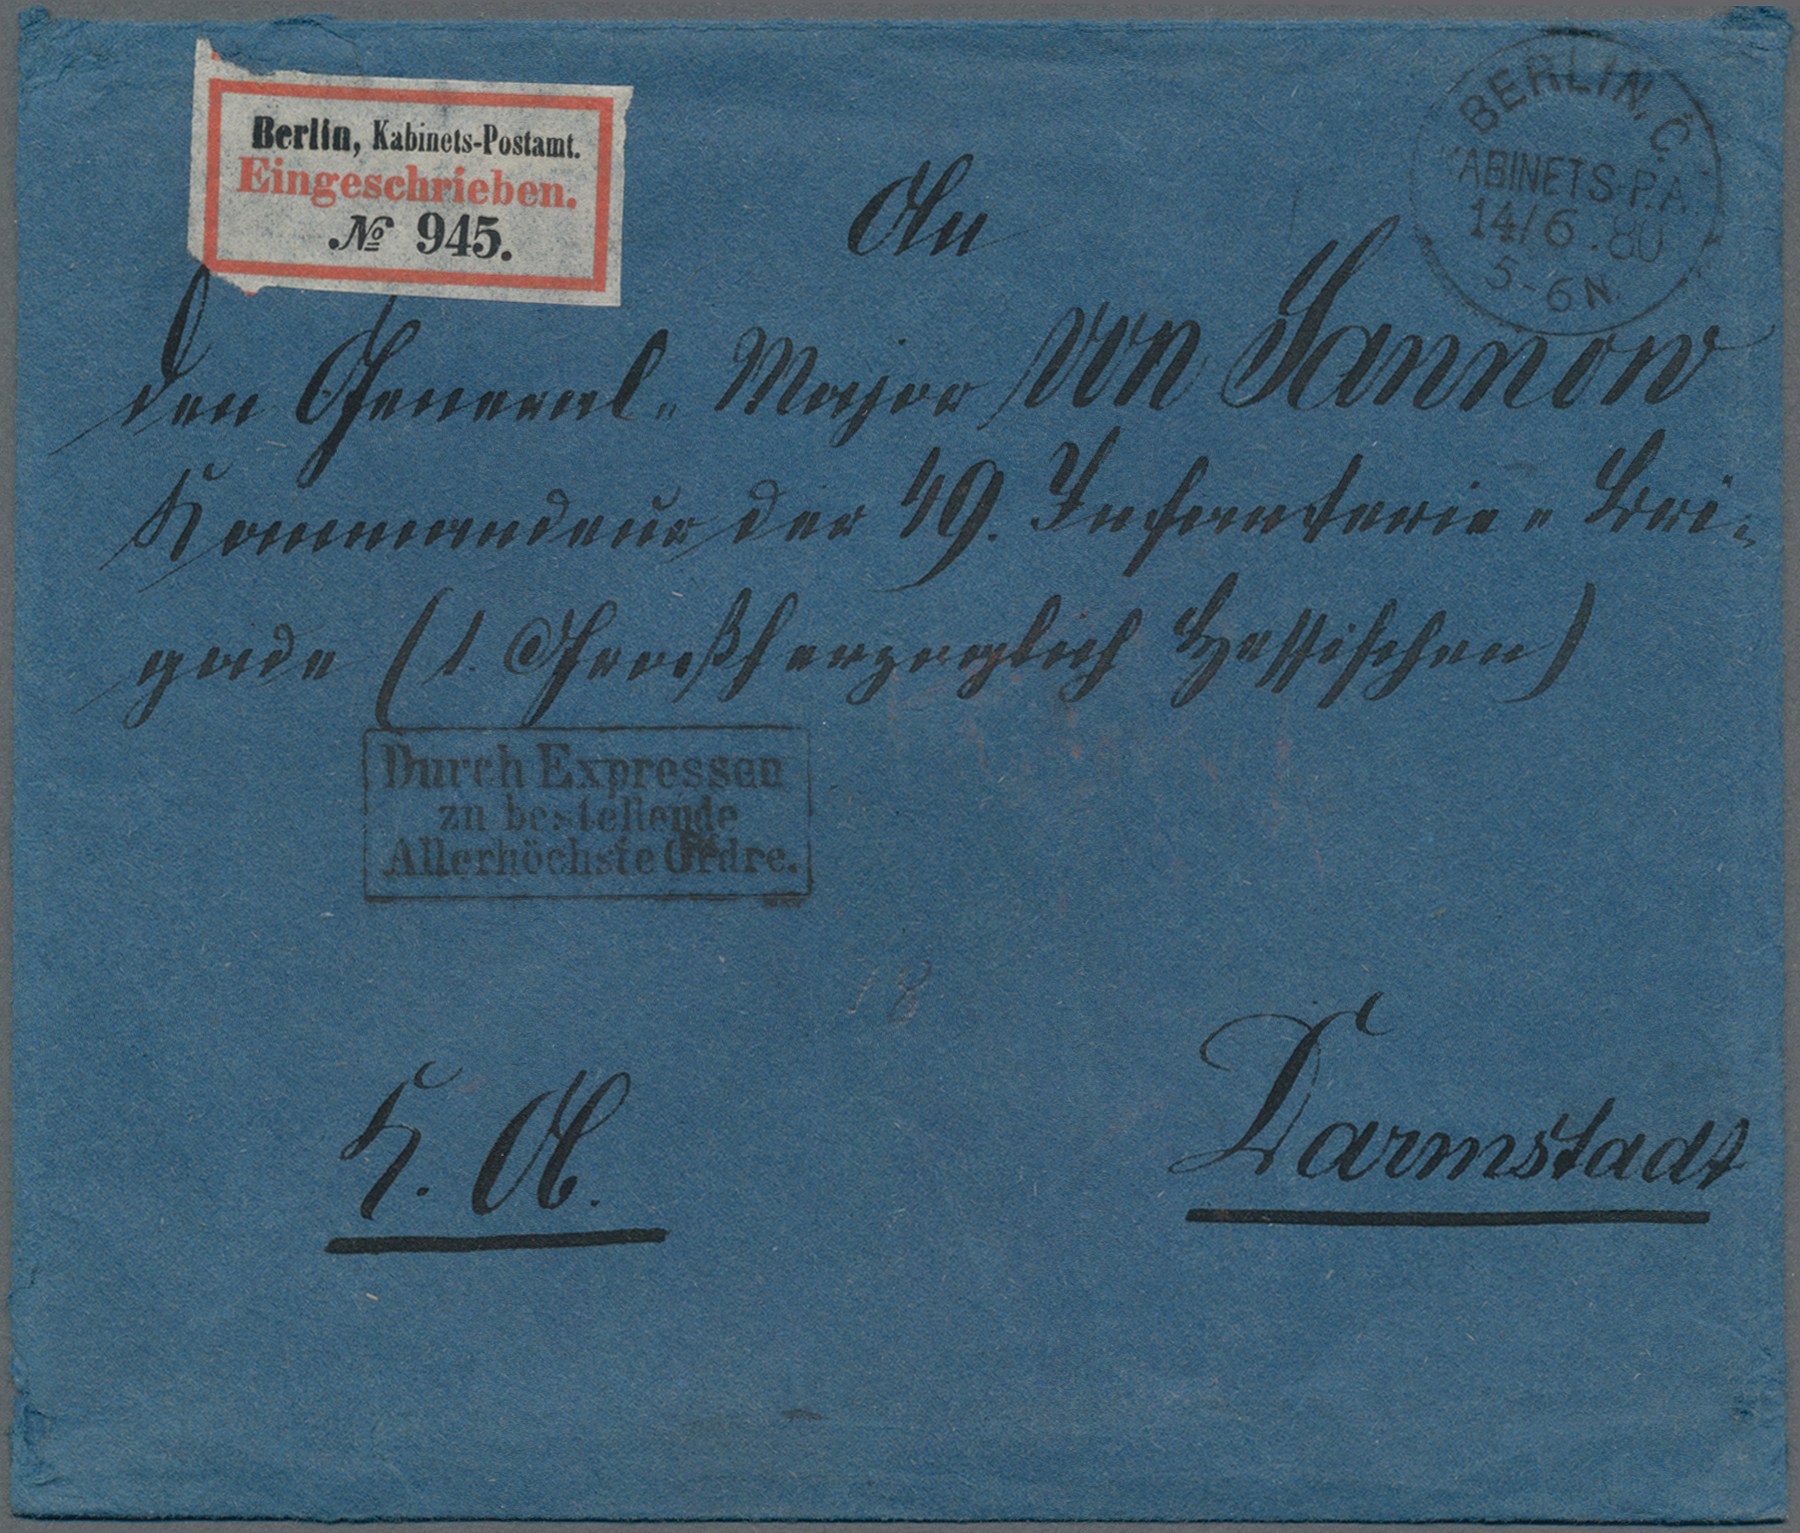 Berlin, Kabinets-Postamt.
Eingeschrieben.
№ 945.
BERLIN, C.
KABINETS-P.A.
14/6.80
5-6N.
An
den General-Major von Sannow
Kommandeur der 49. Infanterie-Bri-
gade (1. Großherzoglich Hessischen)
Durch Expressen
zu bestellende
Allerhöchste Ordre.
18
K. O.
Darmstadt